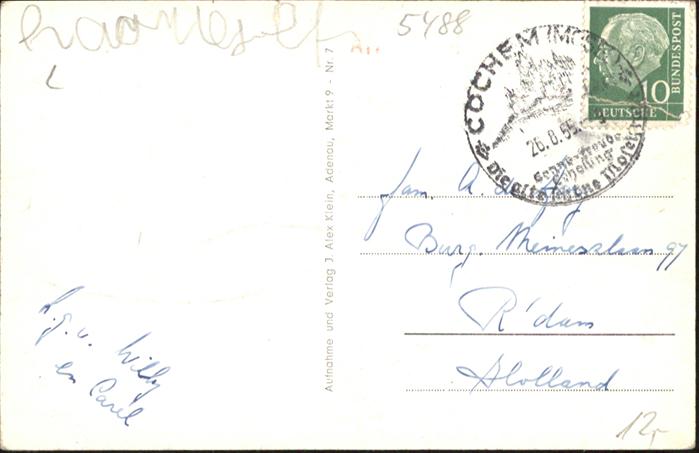 5488
COCHEM (MOSEL)
26.8.55
Die alte
DEUTSCHE BUNDESPOST
10
Fam. A. de
Burg. Meineszlaan 97
R'dam
Holland
h.g.v. Willy
en Carel
Aufnahme und Verlag J. Alex Klein, Adenau, Markt 9 - Nr. 7
12,-